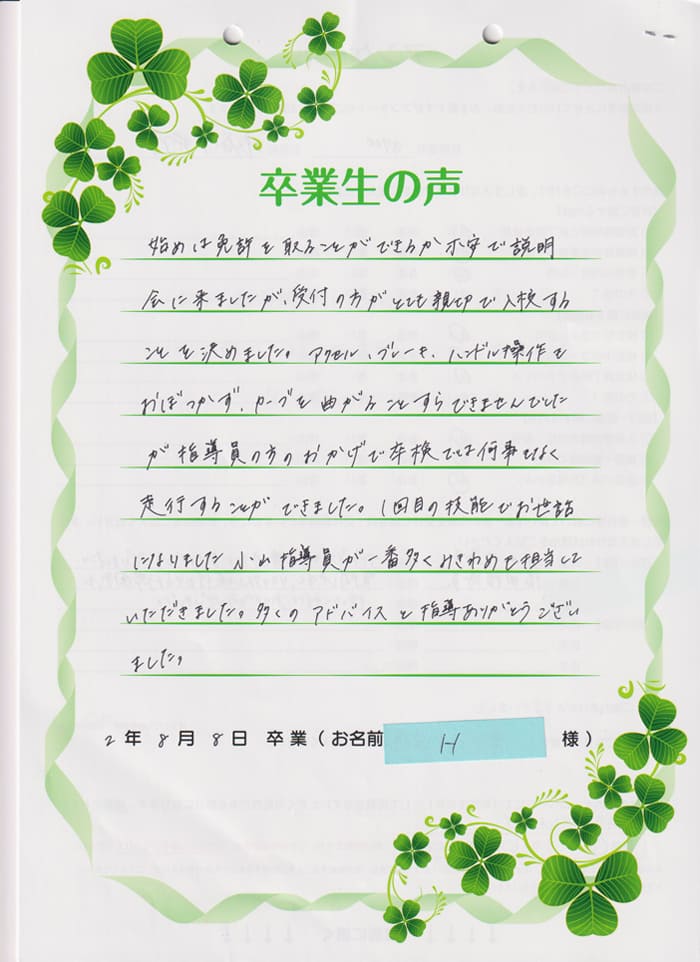 卒業生の声
始めは免許を取ることができるか不安で説明
会に来ましたが、受付の方がとても親切で入校する
ことを決めました。アクセル、ブレーキ、ハンドル操作も
おぼつかず、カーブを曲がることすらできませんでした
が指導員の方のおかげで卒検では何事もなく
走行することができました。1回目の技能でお世話
になりました小山指導員が一番多くみきわめも担当して
いただきました。多くのアドバイスと指導ありがとうござい
ました。
2年8月8日 卒業(お名前 H 様)